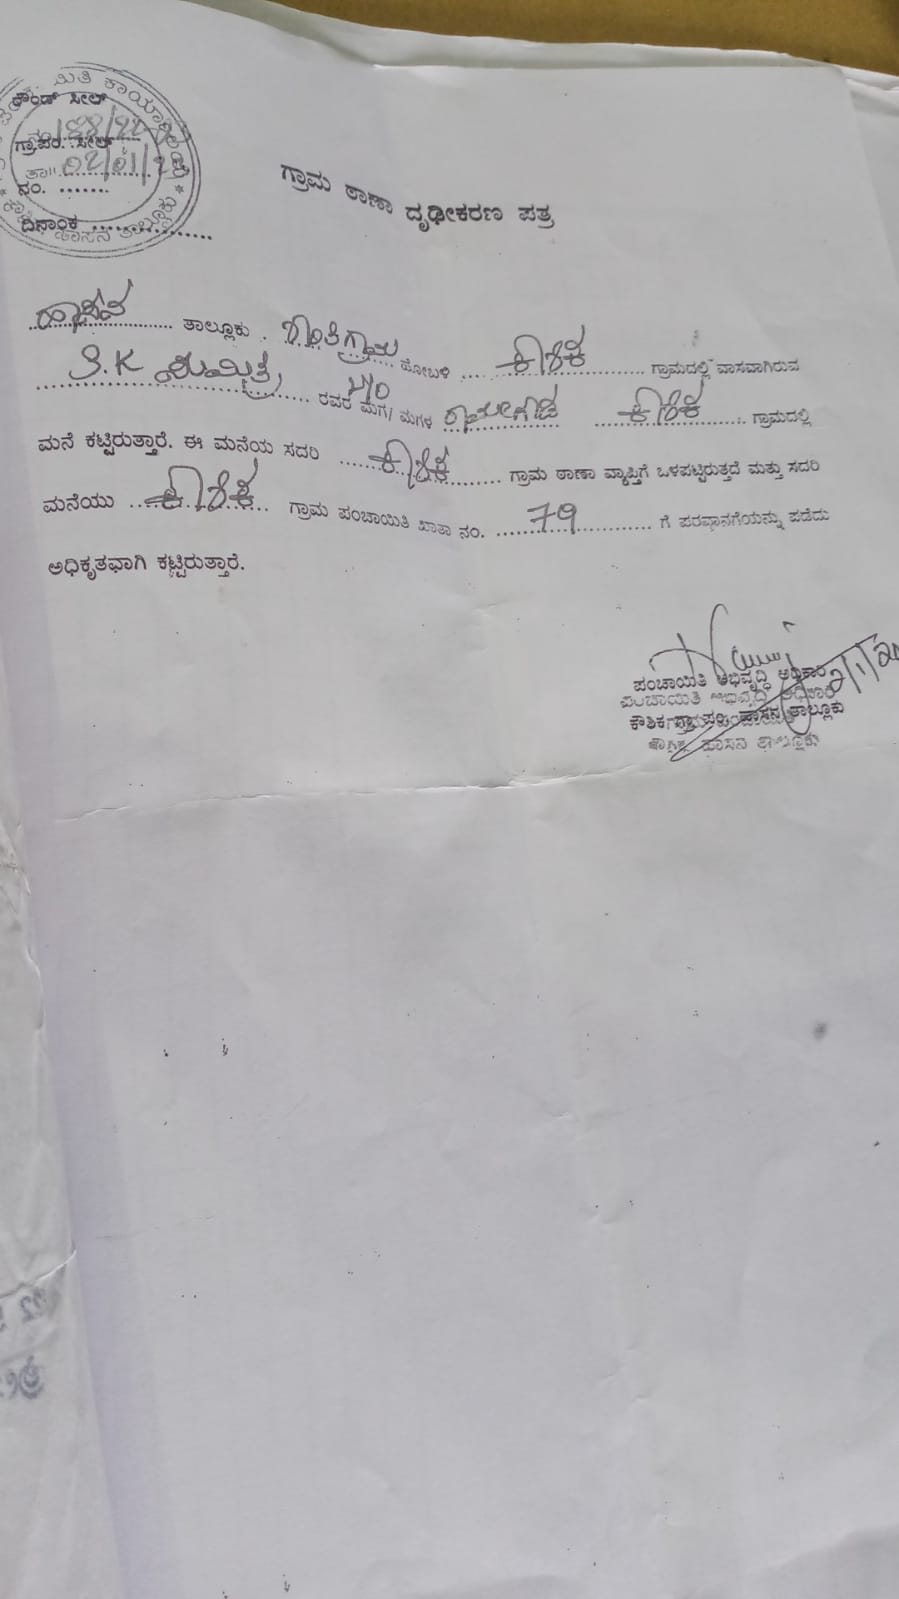 ಮಿತಿ ಕಾರ್ಯಾ
ರೌಂಡ್ ಸೀಲ್
188/22-
ಗ್ರಾಪಂ. ಸೀಲ್
ತಾ॥ 02/01/2
ನಂ. .......
ದಿನಾಂಕ ................
ಹಾಸನ ತಾಲ್ಲೂಕು
ಗ್ರಾಮ ಠಾಣಾ ದೃಢೀಕರಣ ಪತ್ರ
ಹಾಸನ ತಾಲ್ಲೂಕು . ಶಾಂತಿಗ್ರಾಮ ಹೋಬಳಿ .... ಕೌಶಿಕ ಗ್ರಾಮದಲ್ಲಿ ವಾಸವಾಗಿರುವ
S.K ಸುಮಿತ್ರ ರವರ ಮಗ/ ಮಗಳ ರಾಮೇಗೌಡ ಕೌಶಿಕ ಗ್ರಾಮದಲ್ಲಿ
ಮನೆ ಕಟ್ಟಿರುತ್ತಾರೆ. ಈ ಮನೆಯ ಸದರಿ ಕೌಶಿಕ ಗ್ರಾಮ ಠಾಣಾ ವ್ಯಾಪ್ತಿಗೆ ಒಳಪಟ್ಟಿರುತ್ತದೆ ಮತ್ತು ಸದರಿ
ಮನೆಯು ಕೌಶಿಕ ಗ್ರಾಮ ಪಂಚಾಯಿತಿ ಖಾತಾ ನಂ. 79 ಗೆ ಪರವಾನಗೆಯನ್ನು ಪಡೆದು
ಅಧಿಕೃತವಾಗಿ ಕಟ್ಟಿರುತ್ತಾರೆ.
ಪಂಚಾಯಿತಿ ಅಭಿವೃದ್ಧಿ ಅಧಿಕಾರಿ
ಪಂಚಾಯಿತಿ ಅಭಿವೃದ್ಧಿ ಅಧಿಕಾರಿ
ಕೌಶಿಕ ಗ್ರಾ ಪಂ, ಹಾಸನ ತಾಲ್ಲೂಕು
ಕೌಶಿಕ ಹಾಸನ ತಾಲ್ಲೂಕು